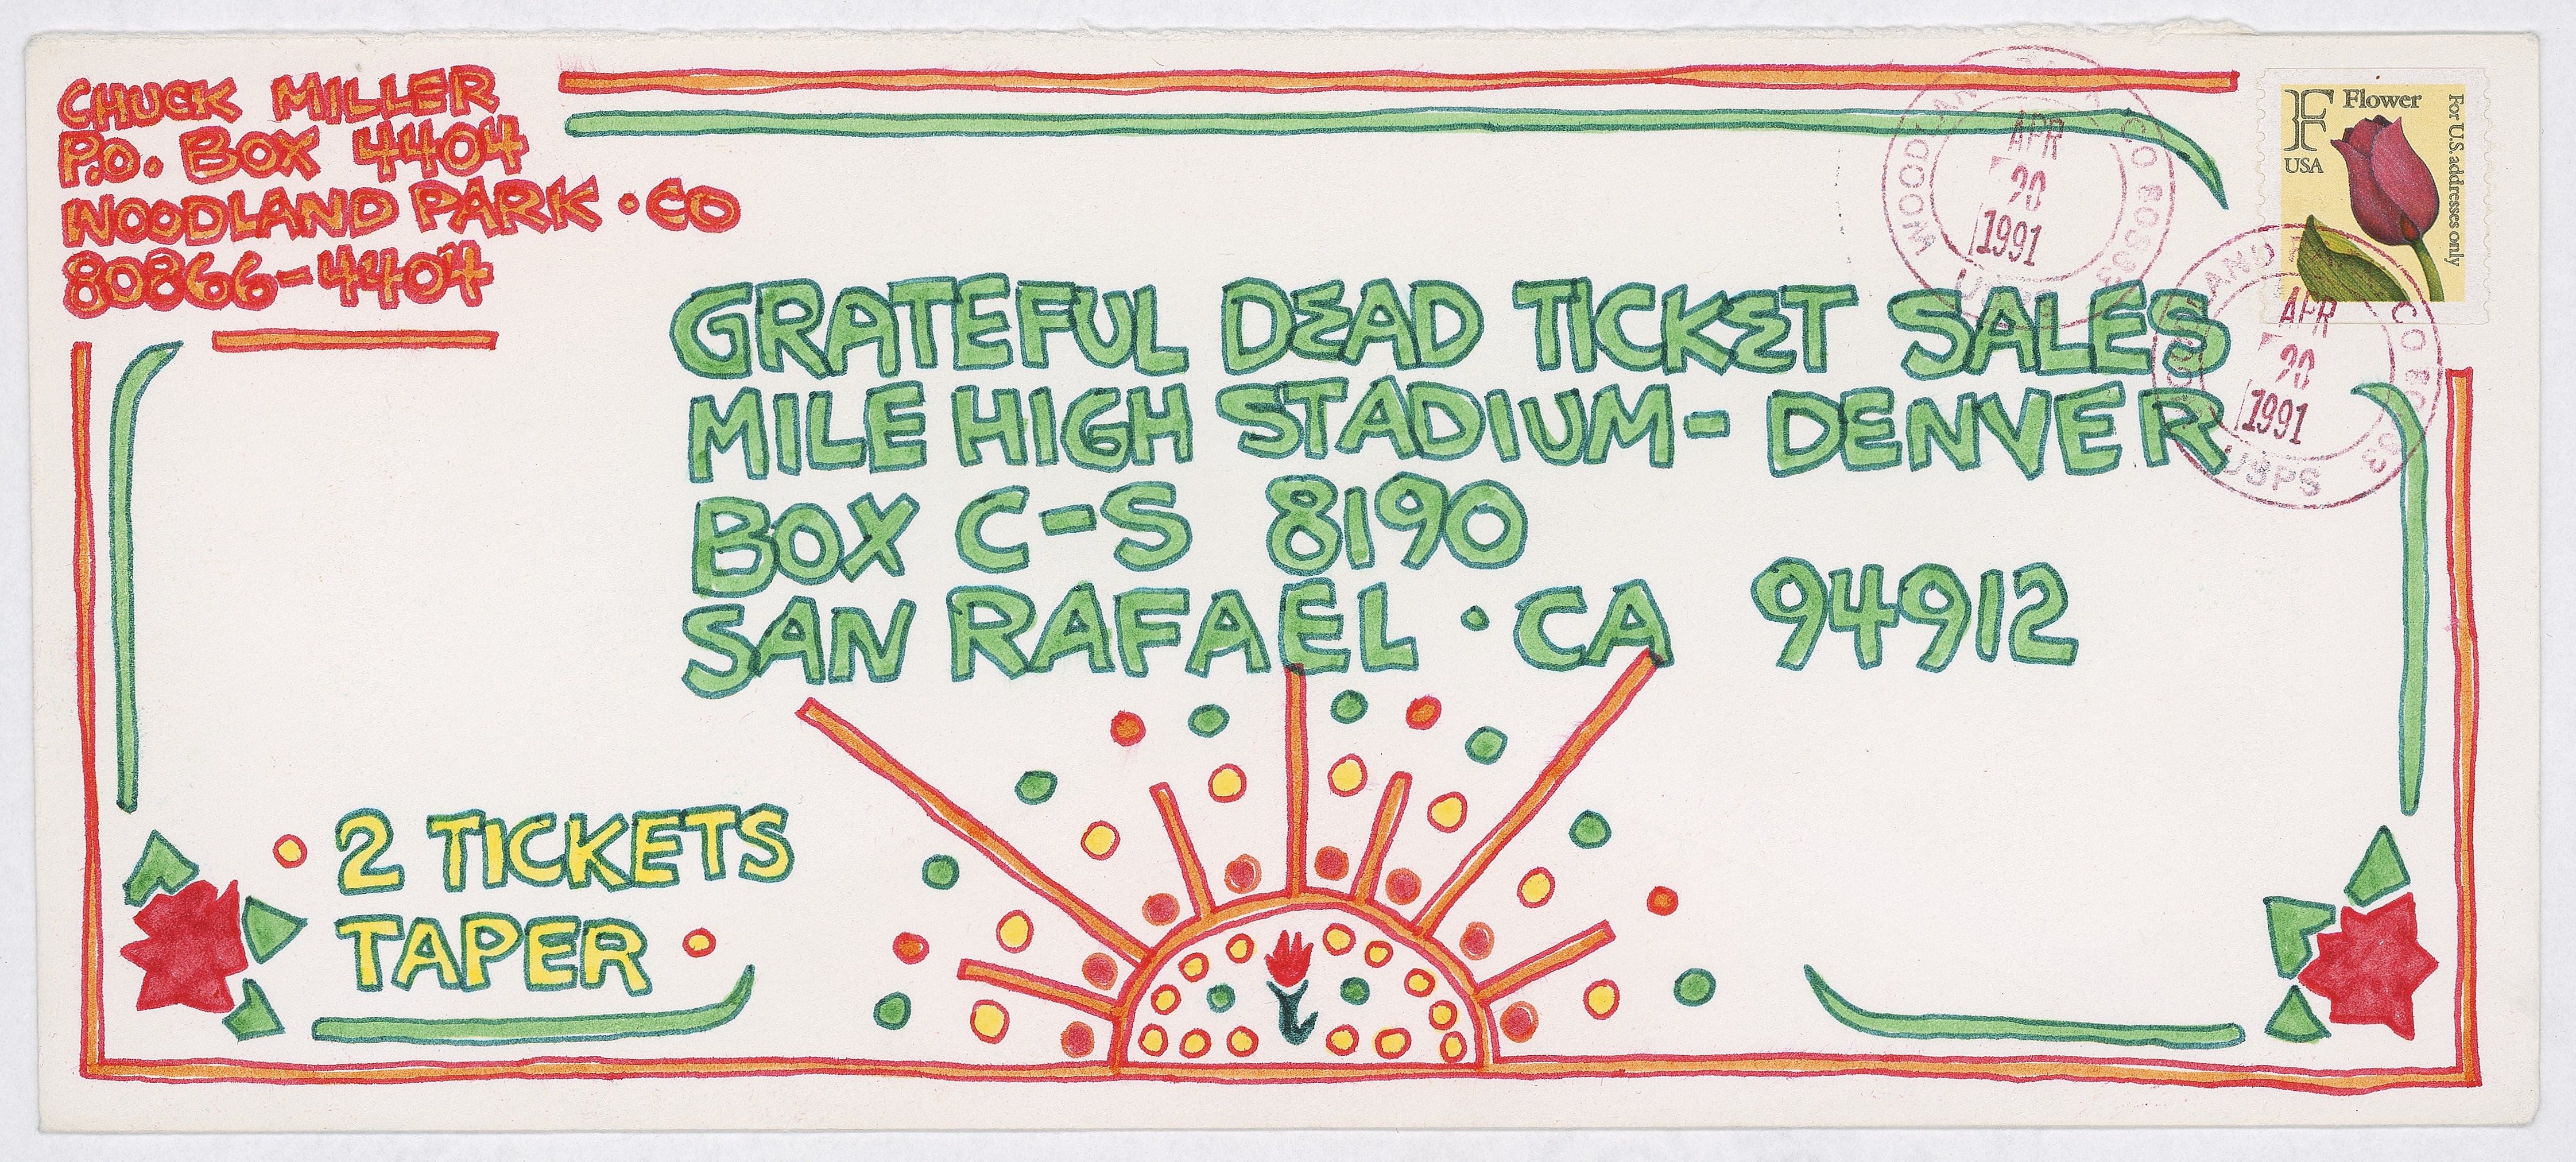 CHUCK MILLER
P.O. BOX 4404
WOODLAND PARK • CO
80866-4404
F Flower
USA
For U.S. addresses only
APR
20
1991
APR
20
1991
USPS
GRATEFUL DEAD TICKET SALES
MILE HIGH STADIUM - DENVER
BOX C-S 8190
SAN RAFAEL • CA 94912
2 TICKETS
TAPER